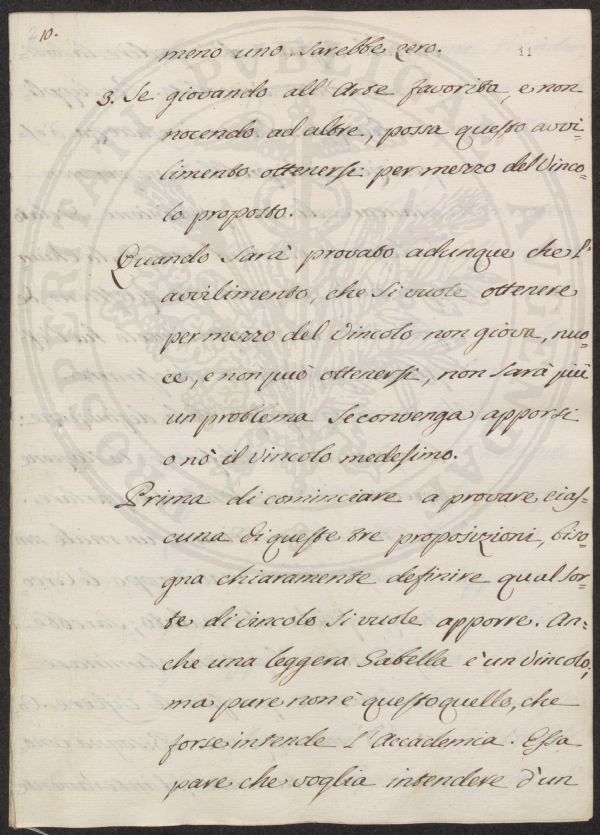 10.
11
meno uno sarebbe zero.
3. Se giovando all'Arte favorita, e non
nocendo ad altre, possa questo avvi=
limento ottenersi per mezzo del Vinco=
lo proposto.
Quando sarà provato adunque che l'
avvilimento, che si vuole ottenere
per mezzo del Vincolo non giova, nuo=
ce, e non può ottenersi, non sarà più
un problema se convenga apporsi
o nò il Vincolo medesimo.
Prima di cominciare a provare cias=
cuna di queste tre proposizioni, biso=
gna chiaramente definire qual sor=
te di vincolo si vuole apporre. An=
che una leggera Gabella è un vincolo,
ma pure non è questo quello, che
forse intende l'Accademia. Essa
pare che voglia intendere d'un
PROSPERITATI PUBLICAE AUGENDAE